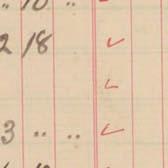 " 10 "
2 18 ✓
✓
3 " " ✓